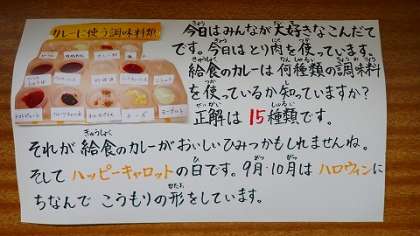 カレーに使う調味料類
今日はみんなが大好きなこんだて
です。今日はとり肉を使っています。
給食のカレーは何種類の調味料
を使っているか知っていますか？
正解は15種類です。
それが給食のカレーがおいしいひみつかもしれませんね。
そしてハッピーキャロットの日です。9月・10月はハロウィンに
ちなんでこうもりの形をしています。